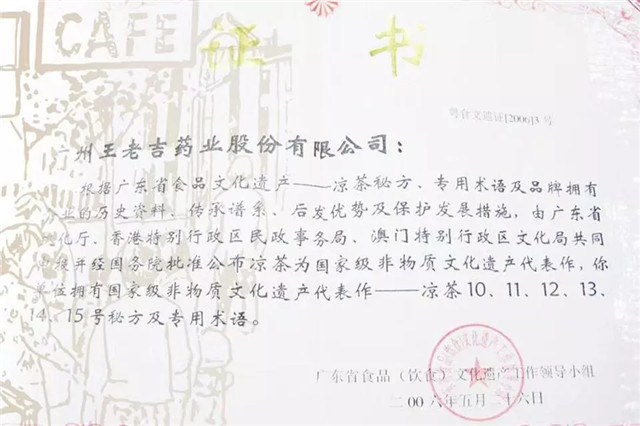 CAFE
证书
粤食文遗证[2006]8号
广州王老吉药业股份有限公司：
根据广东省食品文化遗产——凉茶秘方、专用术语及品牌拥有
业的历史资料、传承谱系、后发优势及保护发展措施，由广东省
化厅、香港特别行政区民政事务局、澳门特别行政区文化局共同
报并经国务院批准公布凉茶为国家级非物质文化遗产代表作，你
单位拥有国家级非物质文化遗产代表作——凉茶10、11、12、13、
14、15号秘方及专用术语。
广东省食品（饮食）文化遗产工作领导小组
二00六年五月二十六日